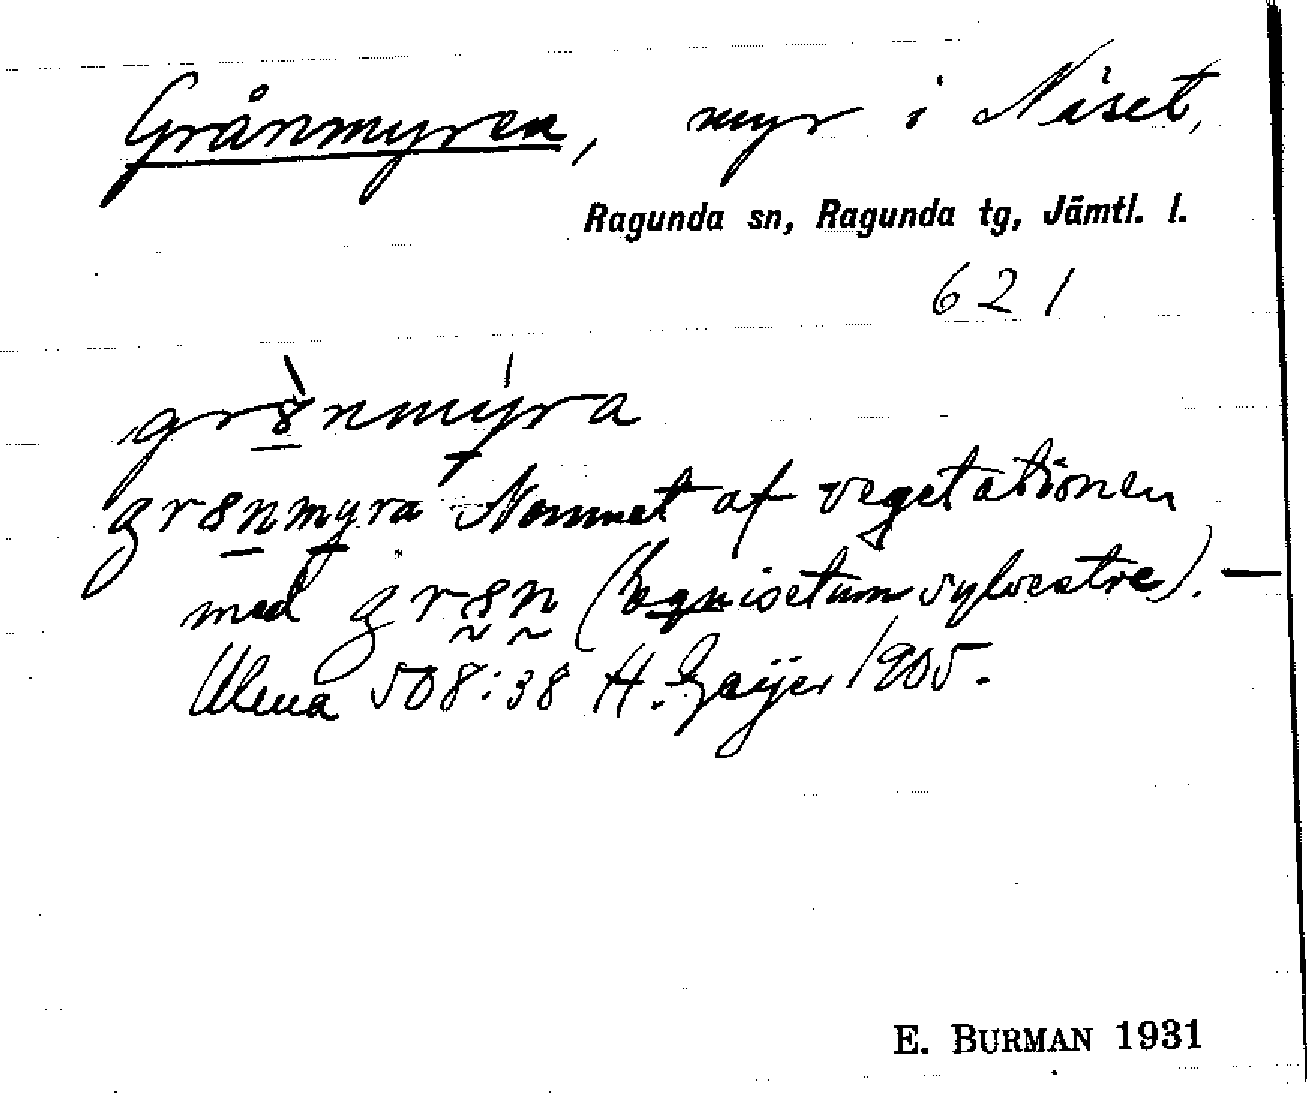 Grånmyren, myr i Näset,
Ragunda sn, Ragunda tg, Jämtl. l.
621
gr8̀nmýra
gr8nmyra Namnet af vegetationen
med gr8n (Eequisetum sylvestre). —
Ulma 508:38 H. Geijer 1905.
E. BURMAN 1931